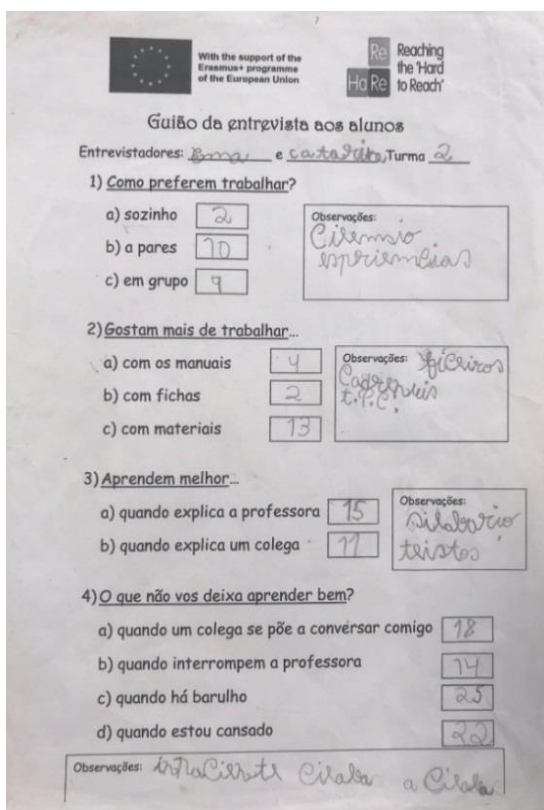 With the support of the
Erasmus+ programme
of the European Union
Re
Ha Re
Reaching
the 'Hard
to Reach'
Guião da entrevista aos alunos
Entrevistadores: e Turma 2
1) Como preferem trabalhar?
a) sozinho 2
b) a pares 10
c) em grupo 9
Observações:
Cilemsio
espriemcias
2) Gostam mais de trabalhar...
a) com os manuais 4
b) com fichas 2
c) com materiais 13
Observações: ficeiros
t.P.C.
3) Aprendem melhor...
a) quando explica a professora 15
b) quando explica um colega 11
Observações:
silabario
teistos
4) O que não vos deixa aprender bem?
a) quando um colega se põe a conversar comigo 18
b) quando interrompem a professora 14
c) quando há barulho 25
d) quando estou cansado 22
Observações: Cilaba a Cilaba